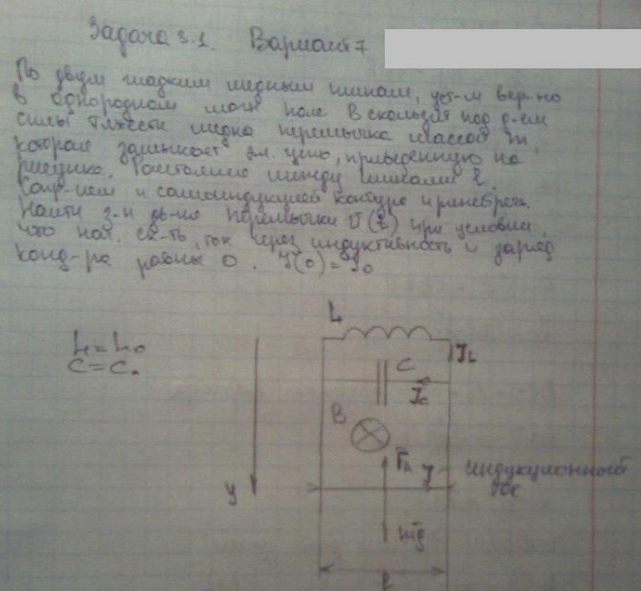 Задача 3.1. Вариант 7
По двум гладким медным шинам, уст-м вер-но
в однородном магн поле B скользит под д-ем
силы тяжести медная перемычка массой m,
которая замыкает эл. цепь, приведенную на
рисунке. Расстояние между шинами l.
Сопр-ием и самоиндукцией контура пренебречь.
Найти з-н дв-ия перемычки при условии,
что нач. ск-ть, ток через индуктивность и заряд
конд-ра равны 0.
L
L = L₀
C = C₀
C
I_L
I_C
B
F_A
I
индукционный
ток
y
mg
l